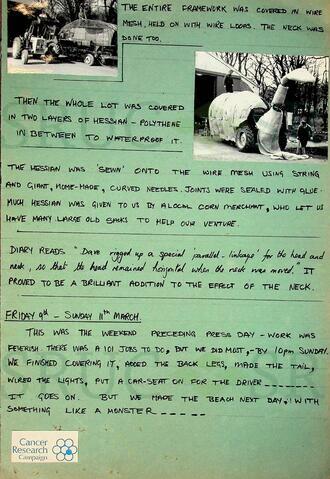 THE ENTIRE FRAMEWORK WAS COVERED IN WIRE
MESH, HELD ON WITH WIRE LOOPS. THE NECK WAS
DONE TOO.
THEN THE WHOLE LOT WAS COVERED
IN TWO LAYERS OF HESSIAN - POLYTHENE
IN BETWEEN TO WATERPROOF IT.
THE HESSIAN WAS 'SEWN' ONTO THE WIRE MESH USING STRING
AND GIANT, HOME-MADE, CURVED NEEDLES. JOINTS WERE SEALED WITH GLUE.
MUCH HESSIAN WAS GIVEN TO US BY A LOCAL CORN MERCHANT, WHO LET US
HAVE MANY LARGE OLD SACKS TO HELP OUR VENTURE.
DIARY READS "Dave rigged up a special 'parallel-linkage' for the head and
neck, so that the head remained horizontal when the neck was moved." IT
PROVED TO BE A BRILLIANT ADDITION TO THE EFFECT OF THE NECK.
FRIDAY 9th - SUNDAY 11th MARCH.
THIS WAS THE WEEKEND PRECEDING PRESS DAY - WORK WAS
FEVERISH THERE WAS A 101 JOBS TO DO, BUT WE DID MOST,- BY 10pm SUNDAY.
WE FINISHED COVERING IT, ADDED THE BACK LEGS, MADE THE TAIL,
WIRED THE LIGHTS, PUT A CAR-SEAT ON FOR THE DRIVER ------
IT GOES ON. BUT WE MADE THE BEACH NEXT DAY, WITH
SOMETHING LIKE A MONSTER -----
Cancer
Research
Campaign